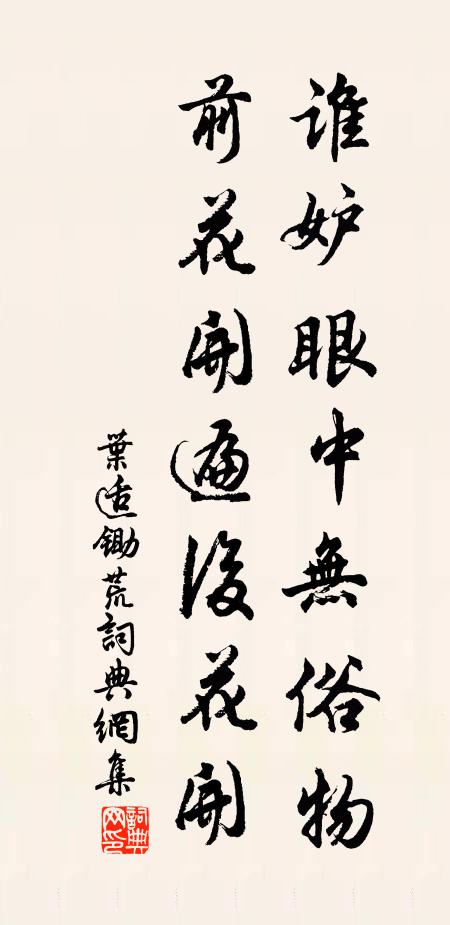 誰妒眼中無俗物
前花開遍後花開
葉適鋤荒詞典網集
詞典網印